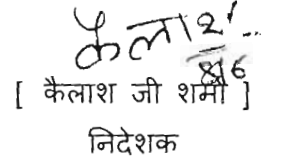 कैलाश
[ कैलाश जी शर्मा ]
निदेशक